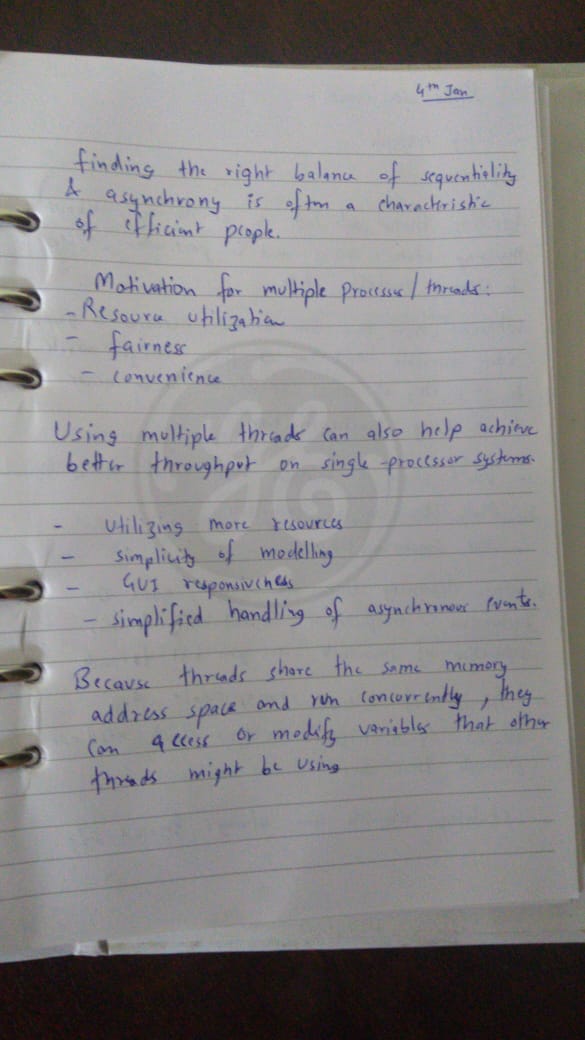 4th Jan
finding the right balance of sequentiality
& asynchrony is often a characteristic
of efficient people.
Motivation for multiple processes / threads:
- Resource utilization
- fairness
- convenience
Using multiple threads can also help achieve
better throughput on single-processor systems.
- Utilizing more resources
- simplicity of modelling
- GUI responsiveness
- simplified handling of asynchronous events.
Because threads share the same memory
address space and run concurrently, they
can access or modify variables that other
threads might be using